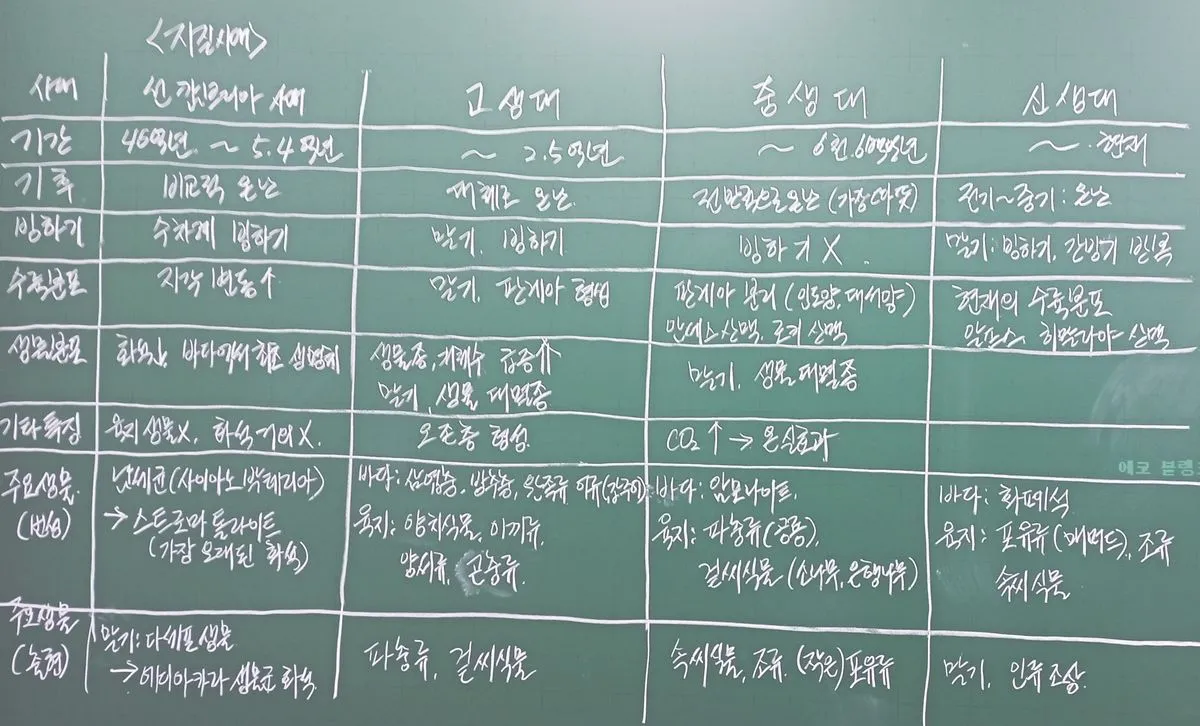 <지질시대>
시대 선캄브리아 시대 고생대 중생대 신생대
기간 46억년 ~ 5.4억년 ~ 2.5억년 ~ ~ 현재
기후 비교적 온난 대체로 온난 전반적으로 온난 (가장 따뜻) 전기~중기: 온난
빙하기 수차례 빙하기 말기, 빙하기 빙하기 X 말기: 빙하기, 간빙기 반복
수륙분포 지각 변동↑ 말기, 판게아 형성 판게아 분리 (인도양, 대서양) 현재의 수륙분포
안데스 산맥, 로키 산맥 알프스 히말라야 산맥
생물분포 바다에서 최초 생명체 생물종, 개체수 급증↑ 말기, 생물 대멸종
말기, 생물 대멸종
기타특징 육지생물X, 화석 거의 X. 오존층 형성. CO₂ ↑ → 온실효과
에코 블랭
주요생물 남세균(사이아노박테리아) 바다: 삼엽충, 방추충, 완족류 어류(갑주어) 바다: 암모나이트, 바다: 화폐석
(번성) → 스트로마톨라이트 육지: 양치식물, 이끼류, 육지: 파충류(공룡), 육지: 포유류(매머드), 조류
(가장 오래된 화석) 양서류, 곤충류. 겉씨식물 (소나무, 은행나무) 속씨식물
주요생물 말기: 다세포 생물
(출현) → 에디아카라 생물군 화석 파충류, 겉씨식물 속씨식물, 조류, (작은) 포유류 말기, 인류조상.